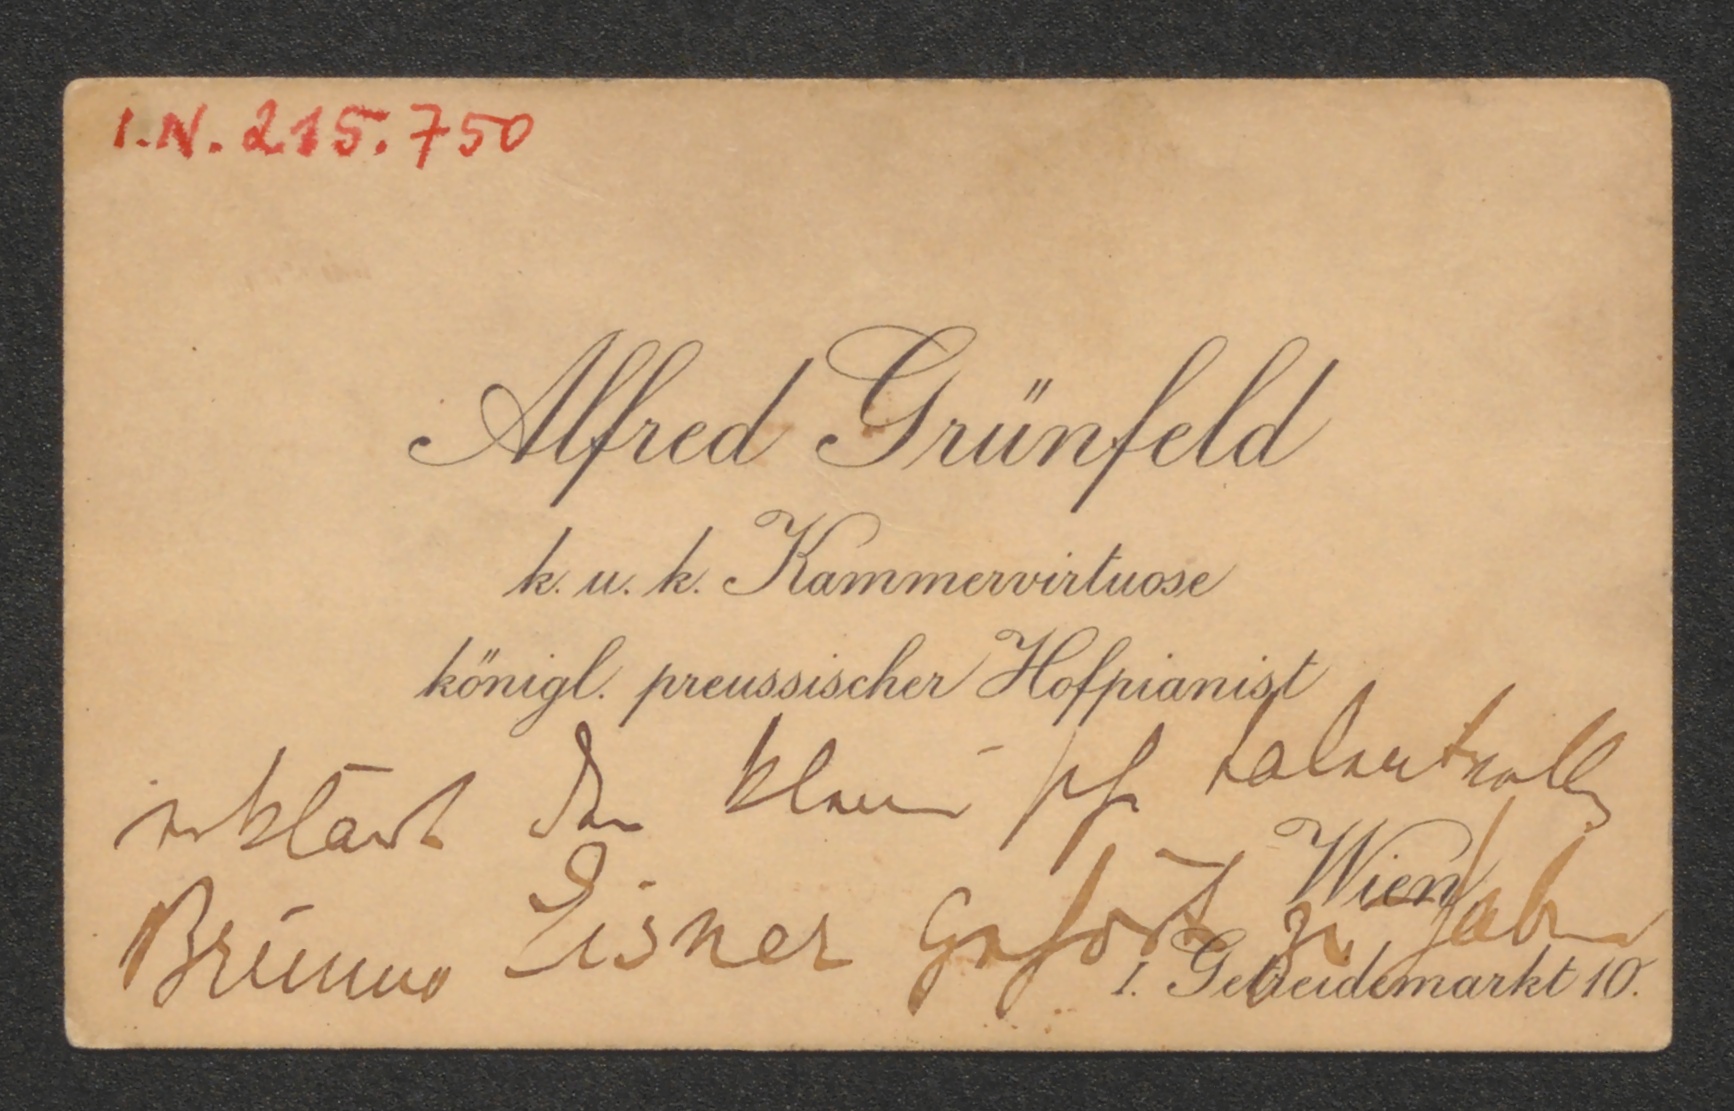 I.N. 215.750
Alfred Grünfeld
k. u. k. Kammervirtuose
königl. preussischer Hofpianist
erklärt den kleinen sehr talentvollen
Wien
Bruno Eisner gehört zu haben
I. Getreidemarkt 10.